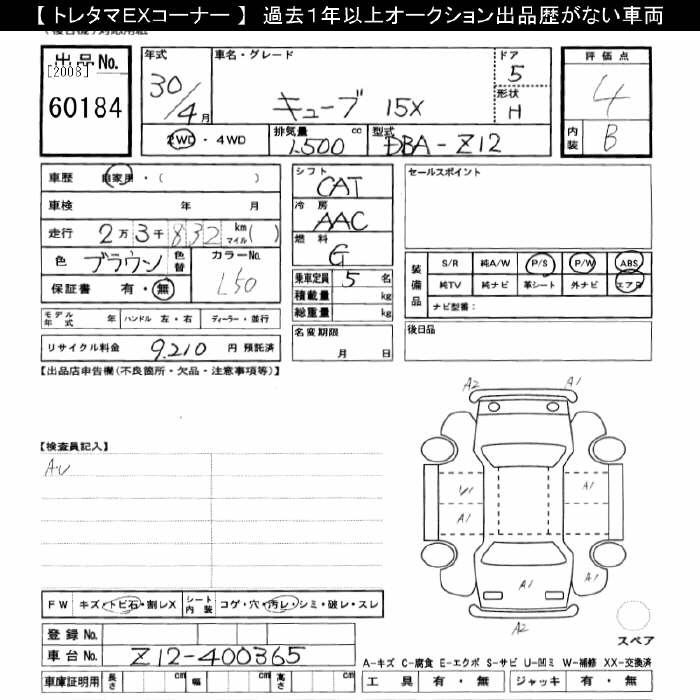 【 トレタマEXコーナー 】 過去1年以上オークション出品歴がない車両
出品No.
[2008]
60184
年式
30/4月
車名・グレード
キューブ 15X
ドア
5
形状
H
評価点
4
内装
B
2WD・4WD
排気量
1.500 cc
型式
DBA-Z12
車歴 自家用・( )
車検 年 月
走行 2万3千832 km マイル( )
色 ブラウン 色替 カラーNo. L50
保証書 有・無
シフト
CAT
冷房
AAC
燃料
G
乗車定員 5 名
積載量 kg
総重量 kg
セールスポイント
装備品
S/R 純A/W P/S P/W ABS
純TV 純ナビ 革シート 外ナビ エアB
ナビ型番:
モデル年式 年 ハンドル 左・右 ディーラー・並行
リサイクル料金 9.210 円 預託済
名変期限
月 日
後日品
【出品店申告欄(不良箇所・欠品・注意事項等)】
【検査員記入】
A.U
A2 A1
U1 A1
A1
A1
A2
FW キズ・トビ石・割レX シート内装 コゲ・穴・汚レ・シミ・破レ・スレ
スペア
登録No.
車台No. Z12-400365
A-キズ C-腐食 E-エクボ S-サビ U-凹ミ W-補修 XX-交換済
車庫証明用 長さ cm 幅 cm 高さ cm
工具 有・無 ジャッキ 有・無